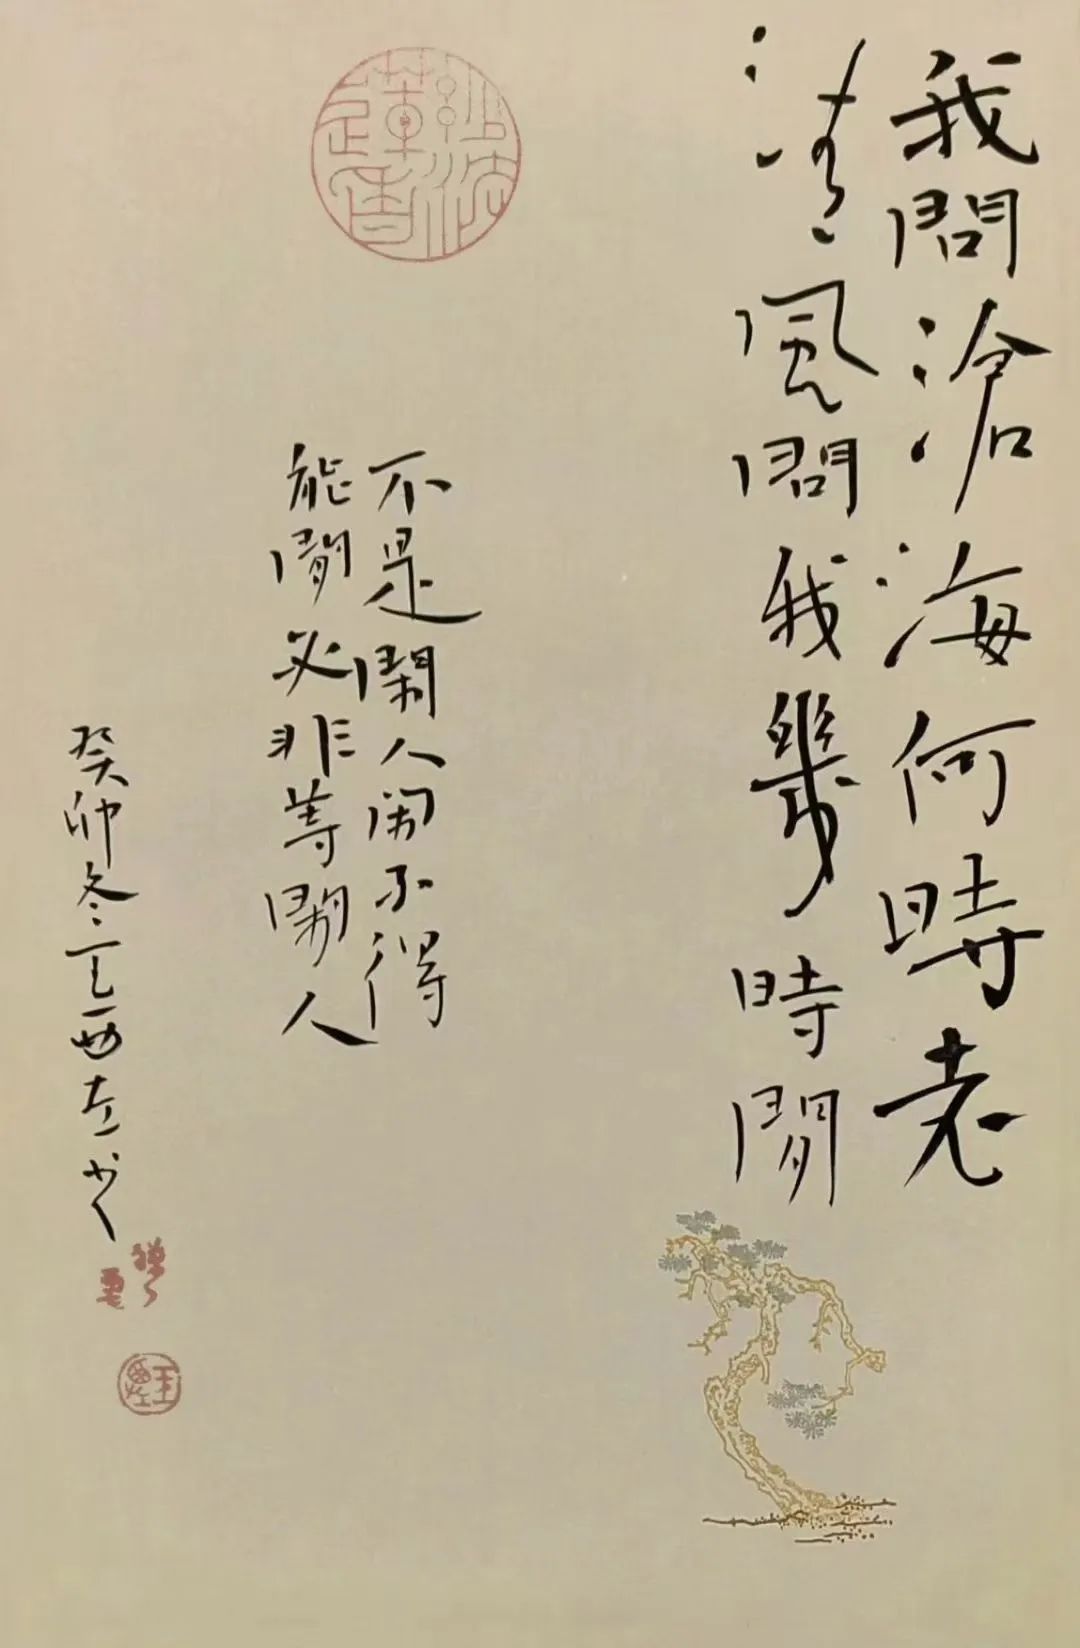 我問滄海何時老
清風問我幾時閒
不是閑人閑不得
能閒必非等閒人
癸卯冬王西左书